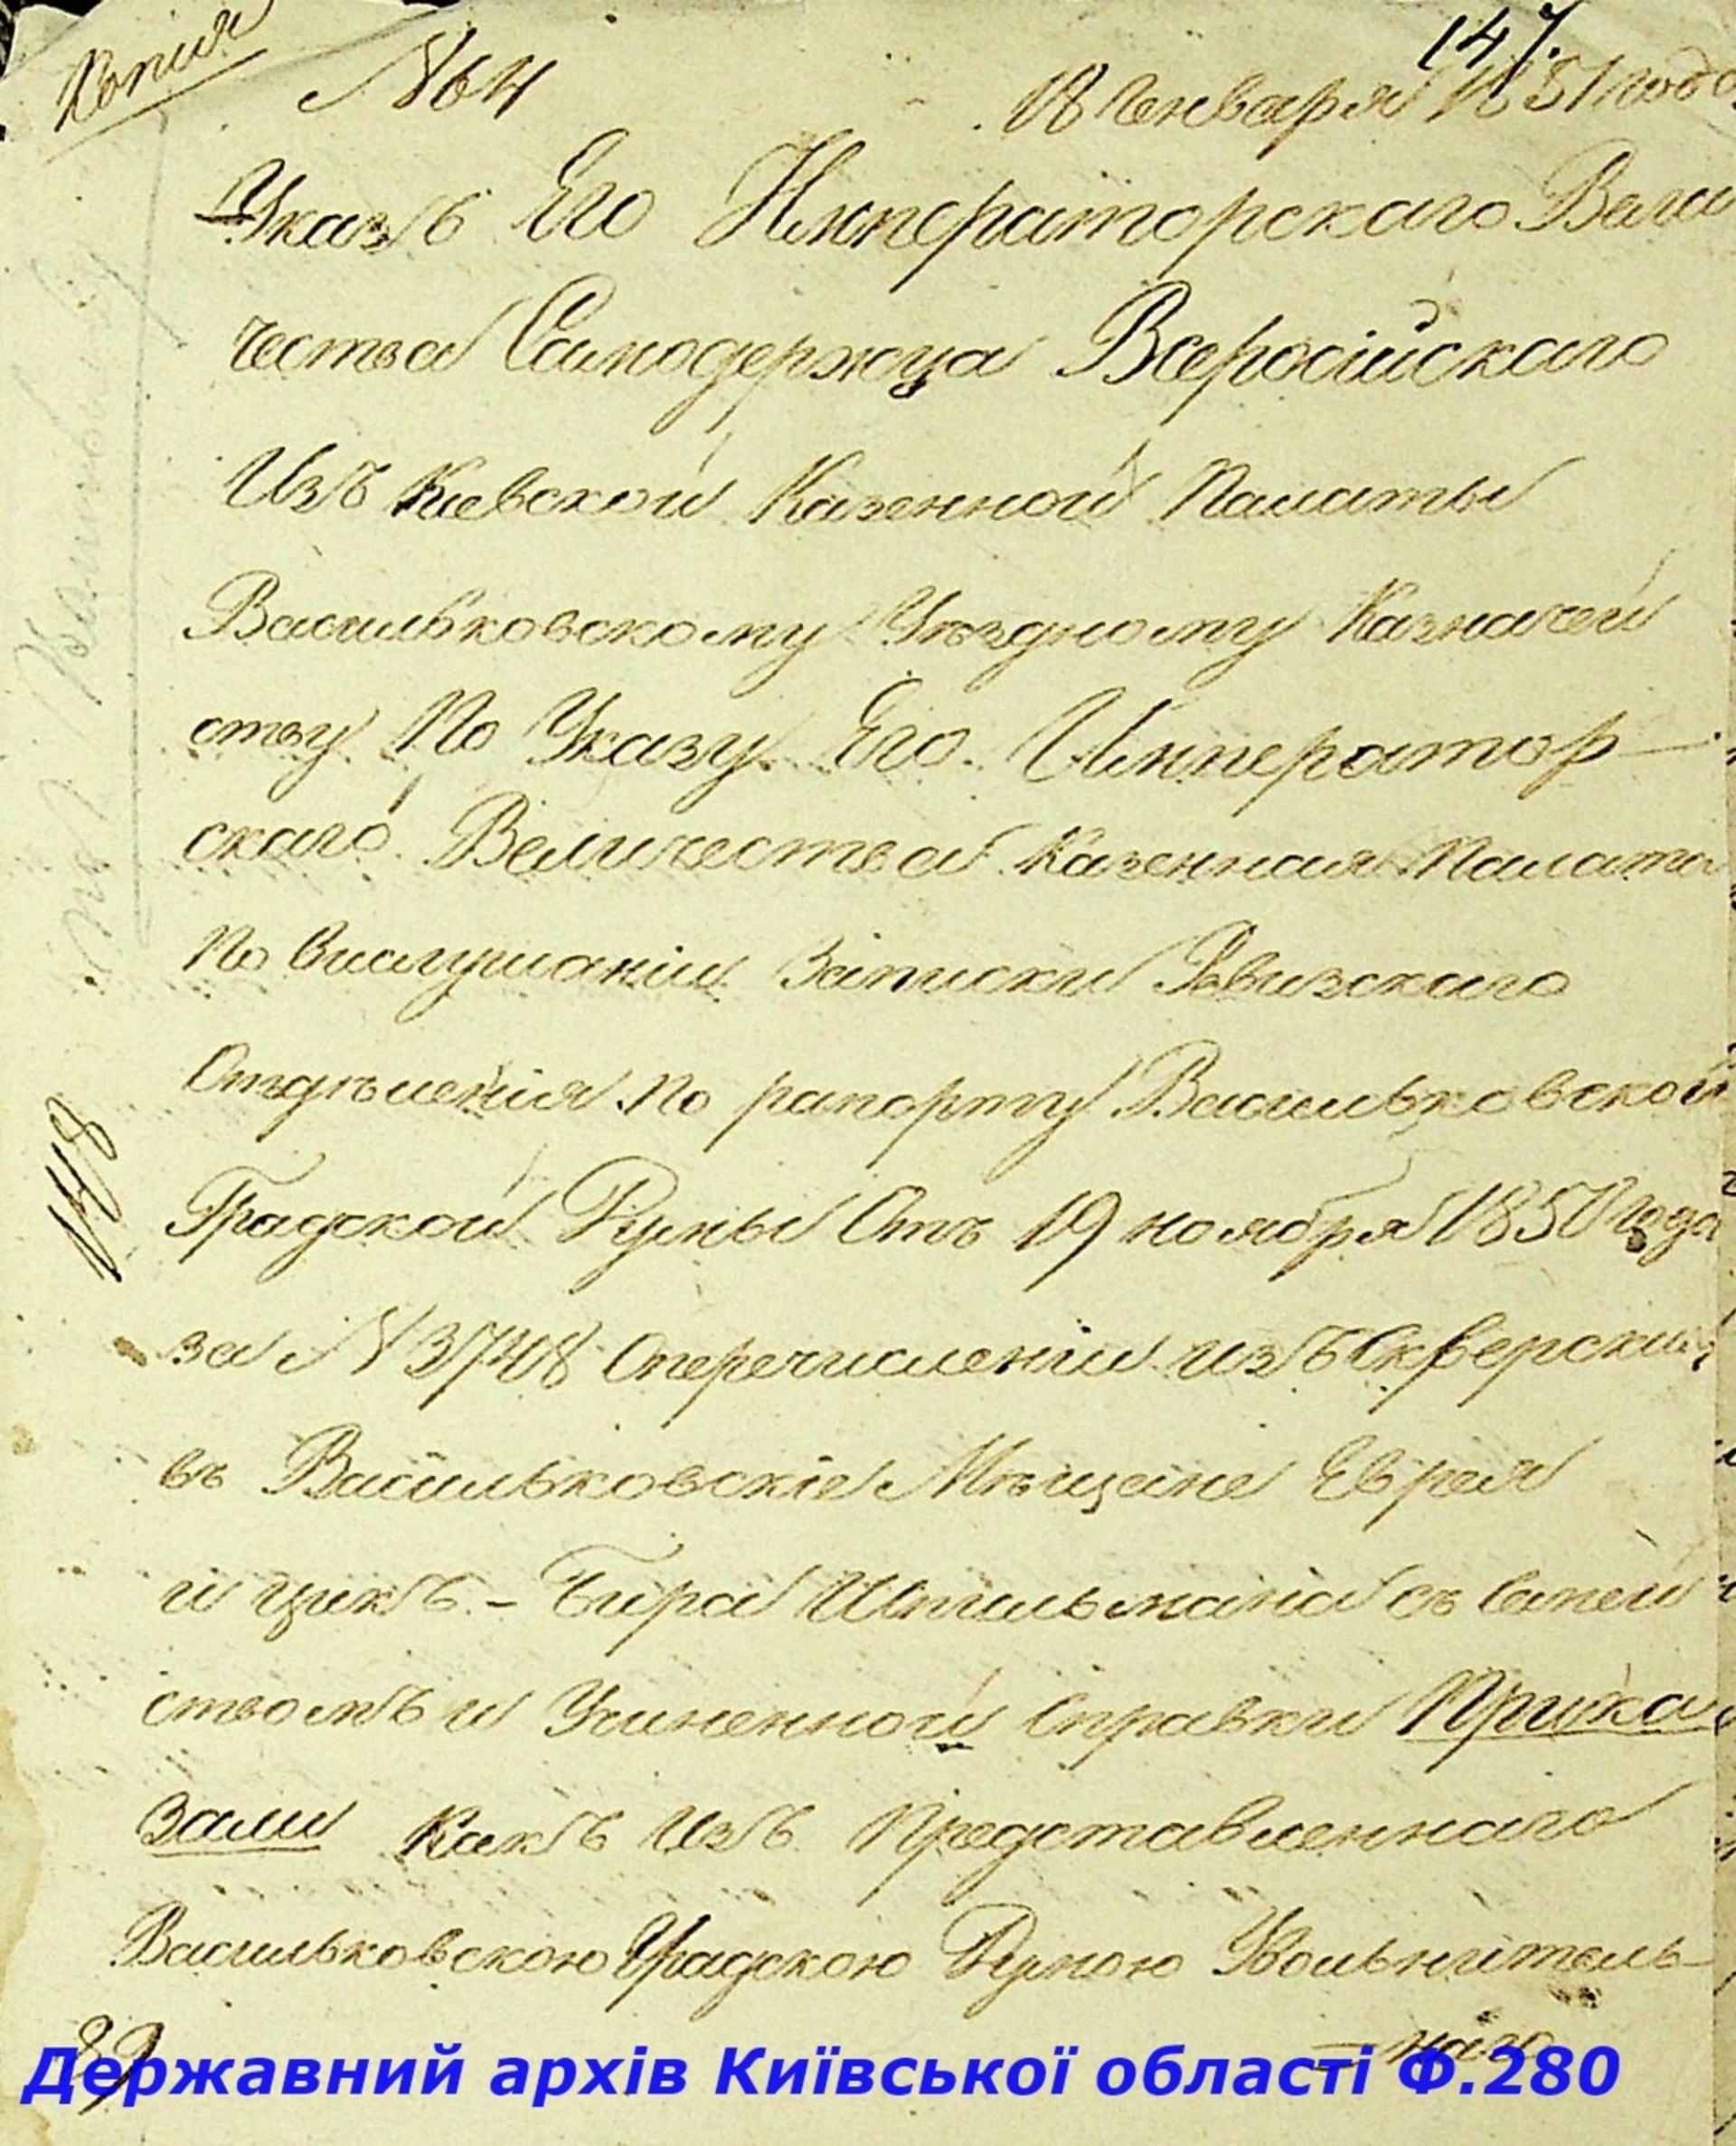 Копия
№ 64
147.
18 Генваря 1851 года
Указъ Его Императорскаго Вели
чества Самодержца Всеросійскаго
Изъ Киевской Казенной Палаты
Васильковскому Уѣздному Казначей
ству По Указу Его Император-
скаго Величества Казенная Палата
По Вислушаніи Записки Ревизскаго
Отдѣленія по рапорту Васильковской
Градской Думы Отъ 19 ноября 1850 года
за № 3748 Оперечисленіи изъ Скверских
въ Васильковскіе Мѣщане Еврея
Ицикъ-Бира Шпильмана съ Семей
ствомъ и Учиненной Справки Прика
зали Какъ Изъ Представленнаго
Васильковскою Градскою Думою Увольнитель-
=наго
148
89
Державний архів Київської області Ф.280